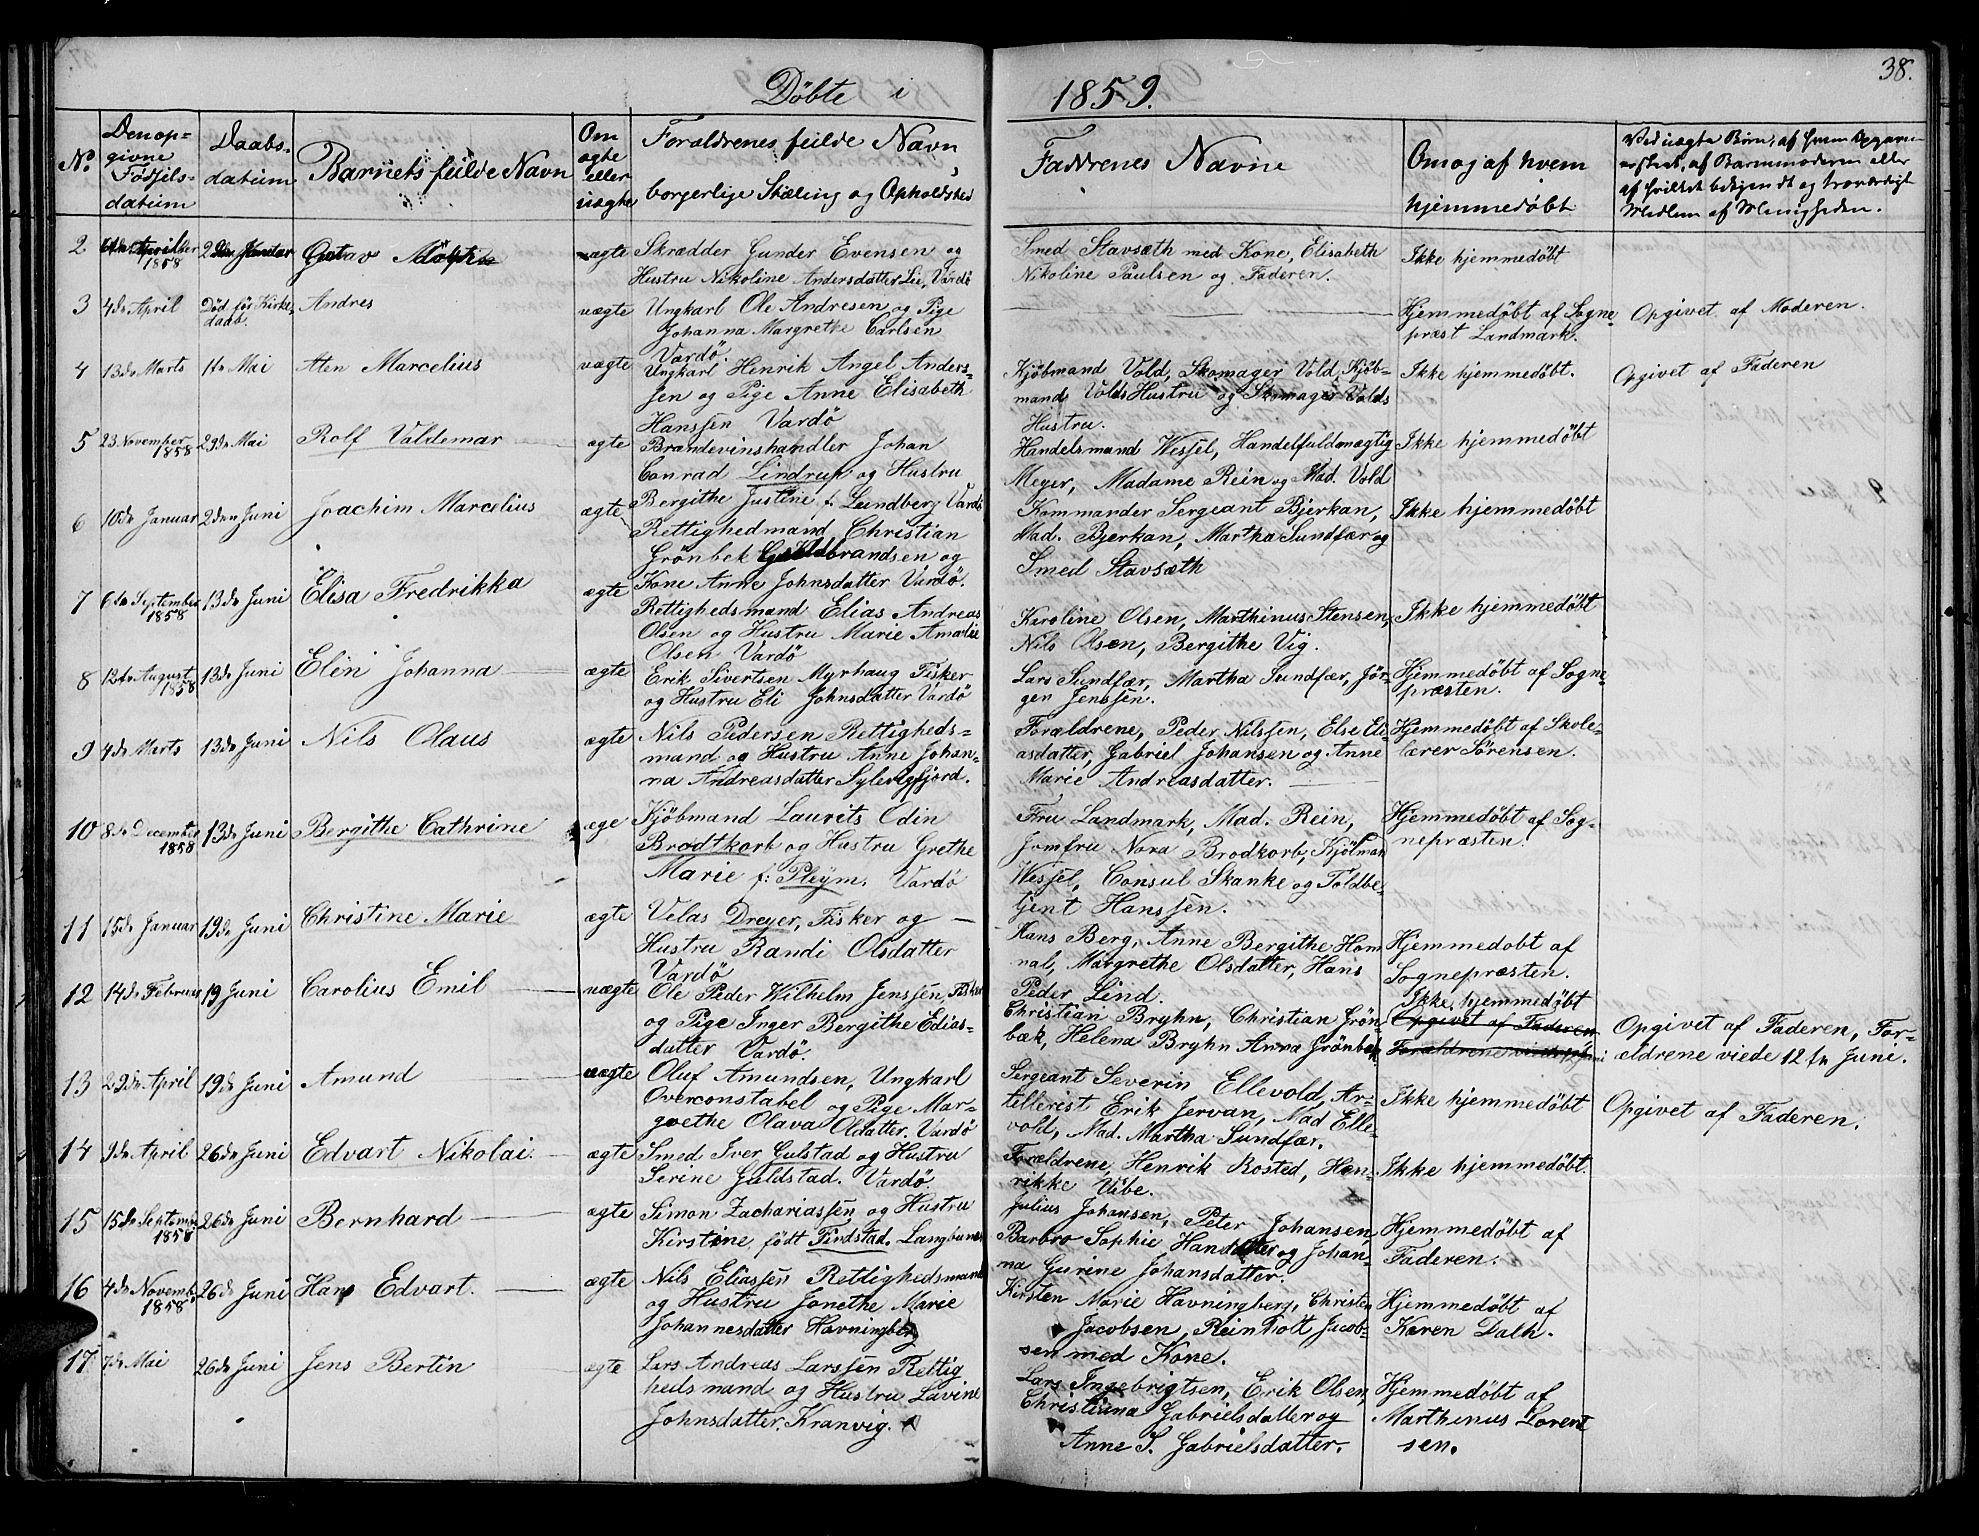 38.
Döbte i 1859.
No.
Den op-
givne
Födsels-
datum
Daabs-
datum
Barnets fulde Navn
Om
ægte
eller
uægte
Forældrenes fulde Navn
borgerlige Stæling og Opholdsted
Faddrenes Navne
Om og af hvem
hjemmedöbt
Ved uægte Börn, af hvem Opgaven
er skeet, af Barnmoderen eller
af hvilket bekjendt og troværdigt
Medlem af Menigheden.
2
1858
Gustav
ægte
Skrædder Gunder Evensen og
Hustru Nikoline Andersdatter Lie, Vardö
Smed Stavsæth med Kone, Elisabeth
Nikoline Paulsen og Faderen.
Ikke hjemmedöbt
3
4de April
Död för Kirke-
daab.
Andres
uægte
Ungkarl Ole Andresen og Pige
Johanna Margrethe Carlsen
Vardö.
Hjemmedöbt af Sogne
præst Landmark.
Opgivet af Moderen.
4
13de Marts
1te Mai
Aten Marcelius
uægte
Ungkarl Henrik Angel Anders-
sen og Pige Anne Elisabeth
Hanssen Vardö
Kjöbmand Vold, Skomager Vold, Kjöb-
mands Volds Hustru og Skomager Volds
Hustru.
Ikke hjemmedöbt.
Opgivet af Faderen
5
23 November
1858
29de Mai
Rolf Valdemar
ægte
Brændevinshandler Johan
Conrad Lindrup og Hustru
Bergithe Justine f. Lundberg Vardö
Handelsmand Wessel, Handelfuldmægtig
Meyer, Madame Rein og Mad. Vold
Ikke hjemmedöbt
6
10de Januar
2den Juni
Joachim Marcelius
ægte
Rettighedmand Christian
Grönbek Guldbrandsen og
Kone Anne Johnsdatter Vardö.
Kommander Sergeant Bjerkan,
Mad. Bjerkan, Martha Sundfær og
Smed Stavsæth
Ikke hjemmedöbt
7
6te September
1858
13de Juni
Elisa Fredrikka
ægte
Rettighedsmand Elias Andreas
Olsen og Hustru Marie Amalie
Olsen Vardö
Karoline Olsen, Marthinus Stensen,
Nils Olsen, Bergithe Vig.
Ikke hjemmedöbt
8
12te August
1858
13de Juni
Elen Johanna
ægte
Erik Sivertsen Myrhaug Fisker
og Hustru Eli Johnsdatter Vardö
Lars Sundfær, Martha Sundfær, Jör-
gen Jenssen.
Hjemmedöbt af Sogne-
præsten.
9
4de Marts
13de Juni
Nils Olaus
ægte
Nils Pedersen Rettigheds-
mand og Hustru Anne Johan-
na Andreasdatter Syltevigfjord.
Forældrene, Peder Nilssen, Else Eli-
asdatter, Gabriel Johansen og Anne
Marie Andreasdatter.
Hjemmedöbt af Skole-
lærer Sörensen.
10
8de December
1858
13de Juni
Bergithe Cathrine
æge
Kjöbmand Laurits Odin
Brodtkorb og Hustru Grethe
Marie f: Pleym. Vardö
Fru Landmark, Mad. Rein,
Jomfru Nora Brodkorb, Kjölman
Wessel, Consul Skanke og Toldbe-
tjent Hanssen.
Hjemmedöbt af Sog-
nepræsten.
11
15de Januar
19de Juni
Christine Marie
ægte
Velas Dreyer, Fisker og
Hustru Randi Olsdatter
Vardö
Hans Berg, Anne Bergithe Hom
nal, Margrethe Olsdatter, Hans
Peder Lind.
Hjemmedobt af
Sognepræsten.
12
14de Februar
19 Juni
Carolius Emil
uægte
Ole Peder Wilhelm Jenssen, Fisker
og Pige Inger Bergithe Edias-
datter Vardö.
Christian Bryhn, Christian Grön-
bæk, Helena Bryhn Anna Grönbek
Ikke hjemmedöbt
Opgivet af Faderen
Opgivet af Faderen, For-
ældrene viede 12te June.
13
29de April
19de Juni
Amund
uægte
Oluf Amundsen, Ungkarl
Overconstabel og Pige Mar-
grethe Olava Oldatter. Vardö
Sergeant Severin Ellevold, Ar-
tellerist Erik Jervan, Mad Elle-
vold, Mad. Martha Sundfær.
Ikke hjemmedöbt
Opgivet af Faderen.
14
9de April
26de Juni
Edvart Nikolai.
ægte
Smed Iver Gulstad og Hustru
Serine Guldstad. Vardö.
Forældrene, Henrik Rosted, Hen-
rikke Vibe.
Ikke hjemmedöbt.
15
15de Septemb
1858
26de Juni
Bernhard
ægte
Simon Zachariassen og Hustru
Kirstine, född Findstad. Langbunes
Julius Johansen, Peter Johansen,
Barbro Sophie Hansdatter og Johan-
na Gurine Johansdatter.
Hjemmedöbt af
Faderen.
16
4de Novemb
1858
26de Juni
Hans Edvart.
ægte
Nils Eliassen Rettighedsmand
og Hustru Jonethe Marie
Johannesdatter Havningberg
Kirsten Marie Havningberg, Christen
Jacobsen, Reinholt Jacob-
sen med Kone.
Hjemmedöbt af
Karen Dalh.
17
7de Mai
26de Juni
Jens Bertin
ægte
Lars Andreas Larssen Rettig
hedsmand og Hustru Lavine
Johnsdatter. Kranvig.
Lars Ingebrigtsen, Erik Olsen,
Christianna Gabrielsdatter og
Anne S. Gabrielsdatter.
Hjemmedöbt af
Marthinus Lorent
sen.